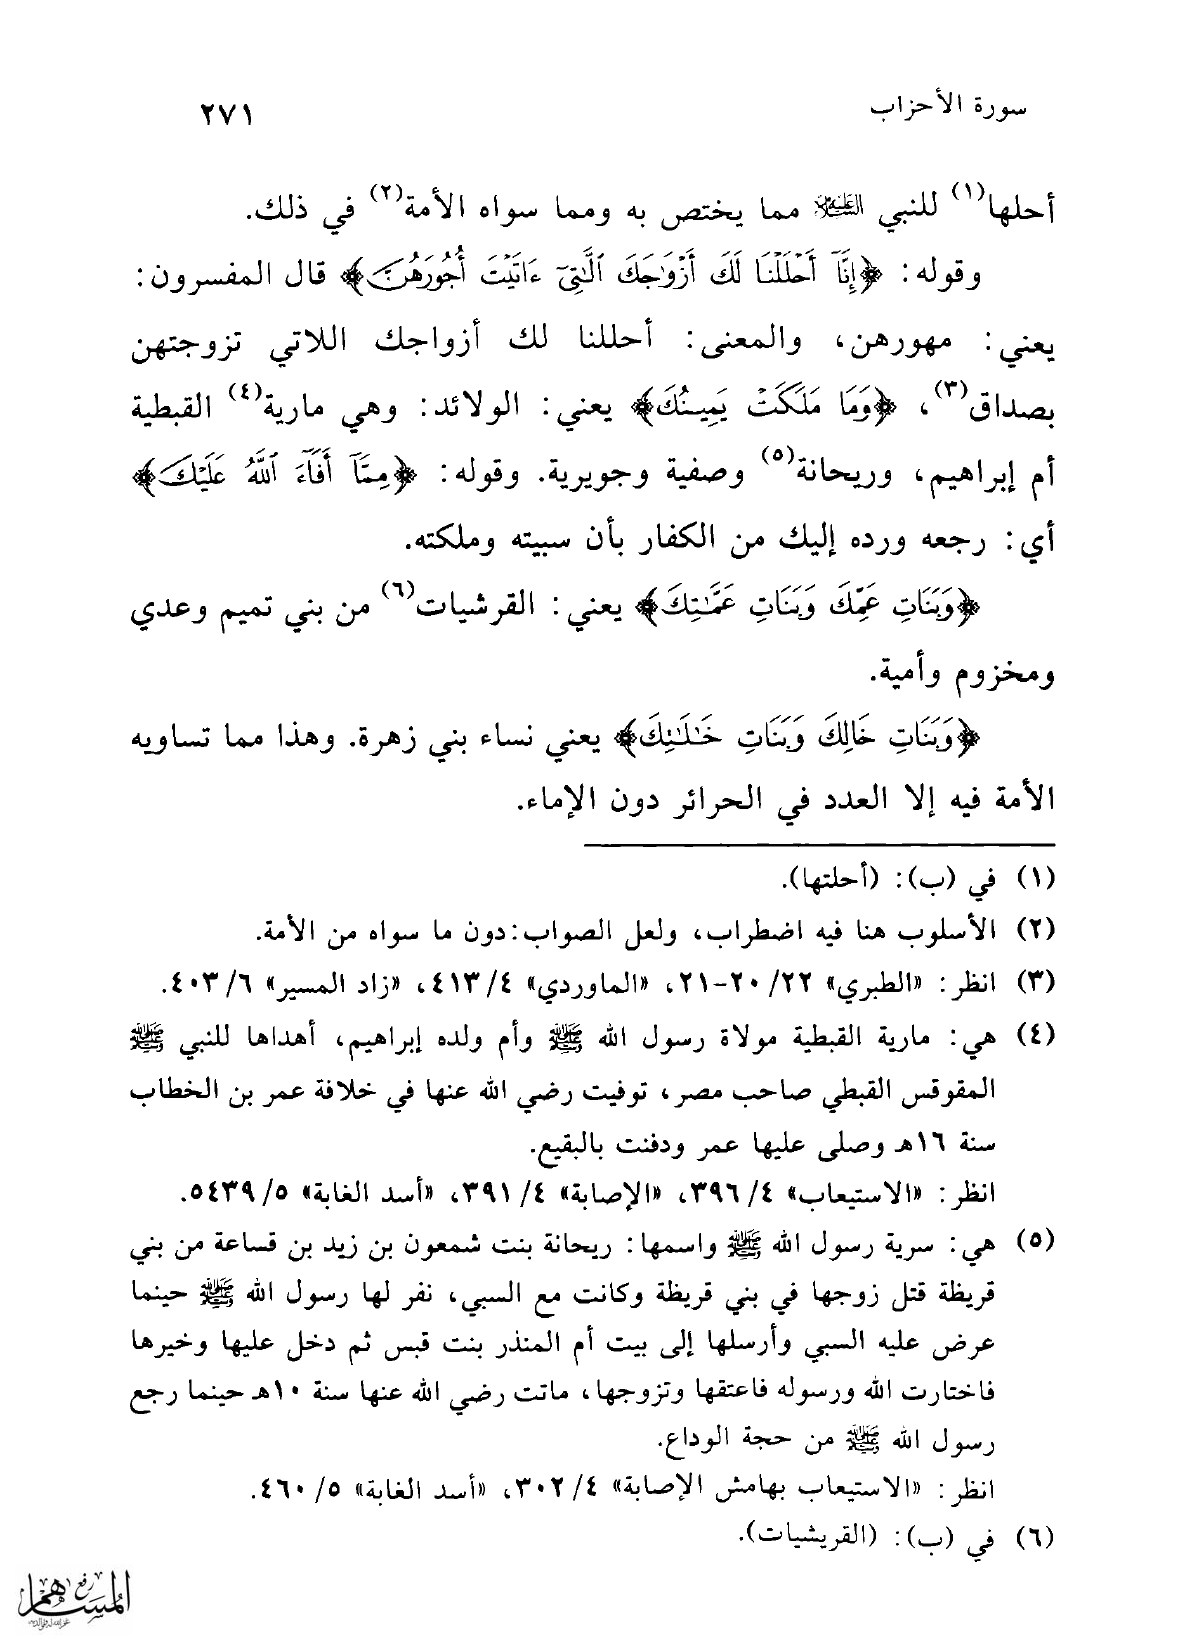 سورة الأحزاب
٢٧١
أحلها(١) للنبي ﷺ مما يختص به ومما سواه الأمة(٢) في ذلك.
وقوله: ﴿إِنَّآ أَحۡلَلۡنَا لَكَ أَزۡوَٰجَكَ ٱلَّٰتِيٓ ءَاتَيۡتَ أُجُورَهُنَّ﴾ قال المفسرون:
يعني: مهورهن، والمعنى: أحللنا لك أزواجك اللاتي تزوجتهن
بصداق(٣)، ﴿وَمَا مَلَكَتۡ يَمِينُكَ﴾ يعني: الولائد: وهي مارية(٤) القبطية
أم إبراهيم، وريحانة(٥) وصفية وجويرية. وقوله: ﴿مِمَّآ أَفَآءَ ٱللَّهُ عَلَيۡكَ﴾
أي: رجعه ورده إليك من الكفار بأن سبيته وملكته.
﴿وَبَنَاتِ عَمِّكَ وَبَنَاتِ عَمَّٰتِكَ﴾ يعني: القرشيات(٦) من بني تميم وعدي
ومخزوم وأمية.
﴿وَبَنَاتِ خَالِكَ وَبَنَاتِ خَٰلَٰتِكَ﴾ يعني نساء بني زهرة. وهذا مما تساويه
الأمة فيه إلا العدد في الحرائر دون الإماء.
(١) في (ب): (أحلتها).
(٢) الأسلوب هنا فيه اضطراب، ولعل الصواب:دون ما سواه من الأمة.
(٣) انظر: «الطبري» ٢٢/ ٢٠-٢١، «الماوردي» ٤/ ٤١٣، «زاد المسير» ٦/ ٤٠٣.
(٤) هي: مارية القبطية مولاة رسول الله ﷺ وأم ولده إبراهيم، أهداها للنبي ﷺ
المقوقس القبطي صاحب مصر، توفيت رضي الله عنها في خلافة عمر بن الخطاب
سنة ١٦هـ وصلى عليها عمر ودفنت بالبقيع.
انظر: «الاستيعاب» ٤/ ٣٩٦، «الإصابة» ٤/ ٣٩١، «أسد الغابة» ٥/ ٥٤٣٩.
(٥) هي: سرية رسول الله ﷺ واسمها: ريحانة بنت شمعون بن زيد بن قساعة من بني
قريظة قتل زوجها في بني قريظة وكانت مع السبي، نفر لها رسول الله ﷺ حينما
عرض عليه السبي وأرسلها إلى بيت أم المنذر بنت قبس ثم دخل عليها وخيرها
فاختارت الله ورسوله فاعتقها وتزوجها، ماتت رضي الله عنها سنة ١٠هـ حينما رجع
رسول الله ﷺ من حجة الوداع.
انظر: «الاستيعاب بهامش الإصابة» ٤/ ٣٠٢، «أسد الغابة» ٥/ ٤٦٠.
(٦) في (ب): (القريشيات).